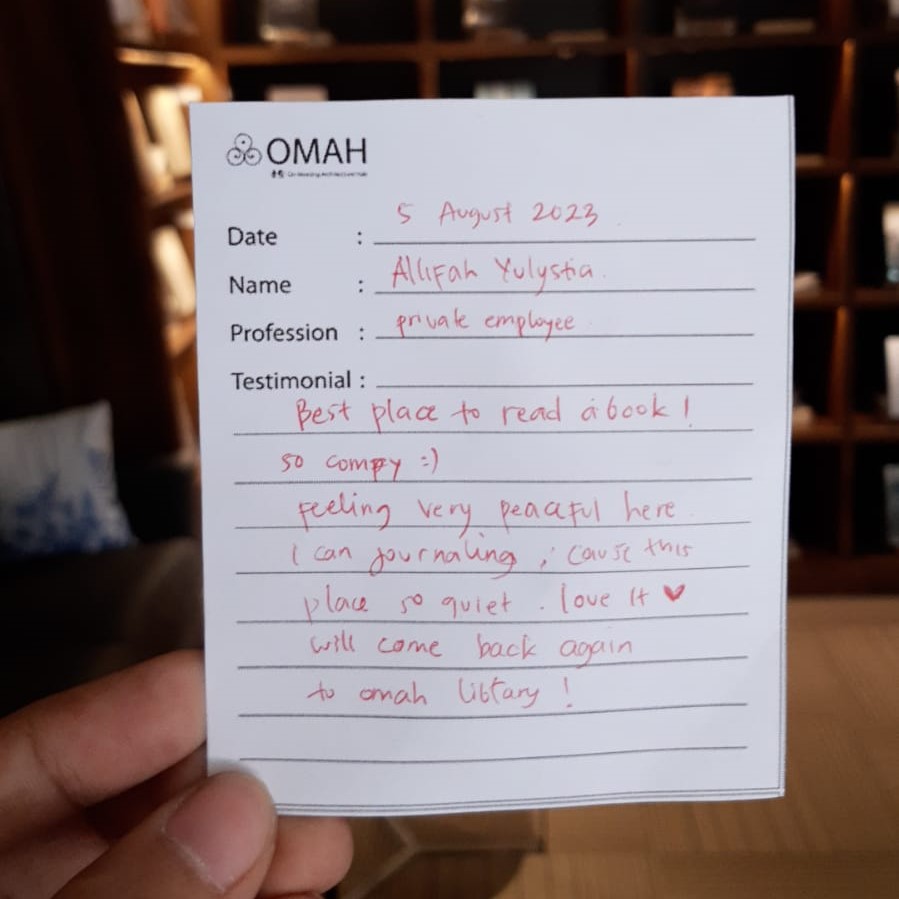 OMAH
Date : 5 August 2023
Name : Allifah Yulystia
Profession : private employee
Testimonial :
Best place to read a book !
so compy :)
Feeling very peaceful here
I can journaling , cause this
place so quiet . love it ♥
will come back again
to omah library !